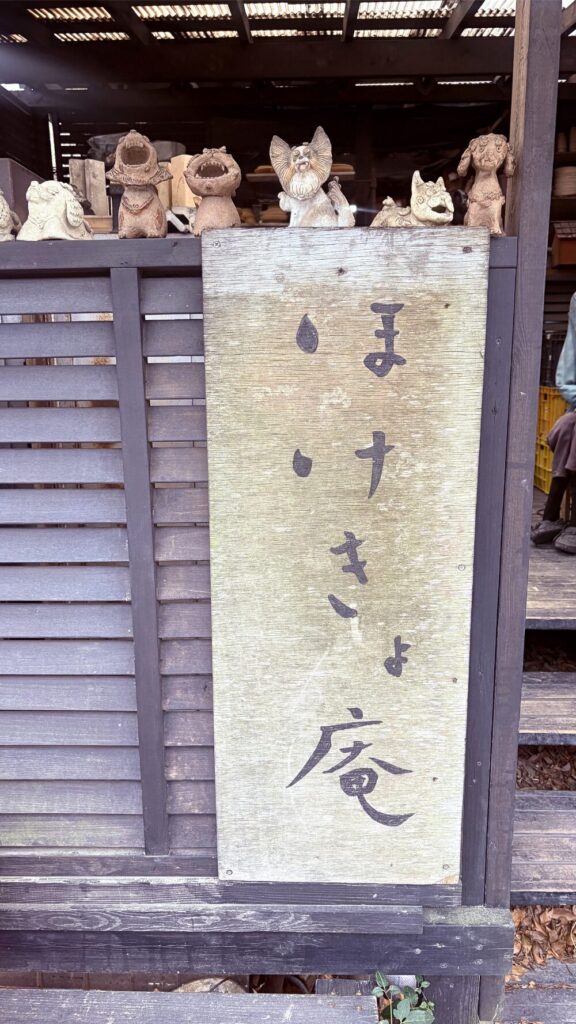 ほけきょ庵